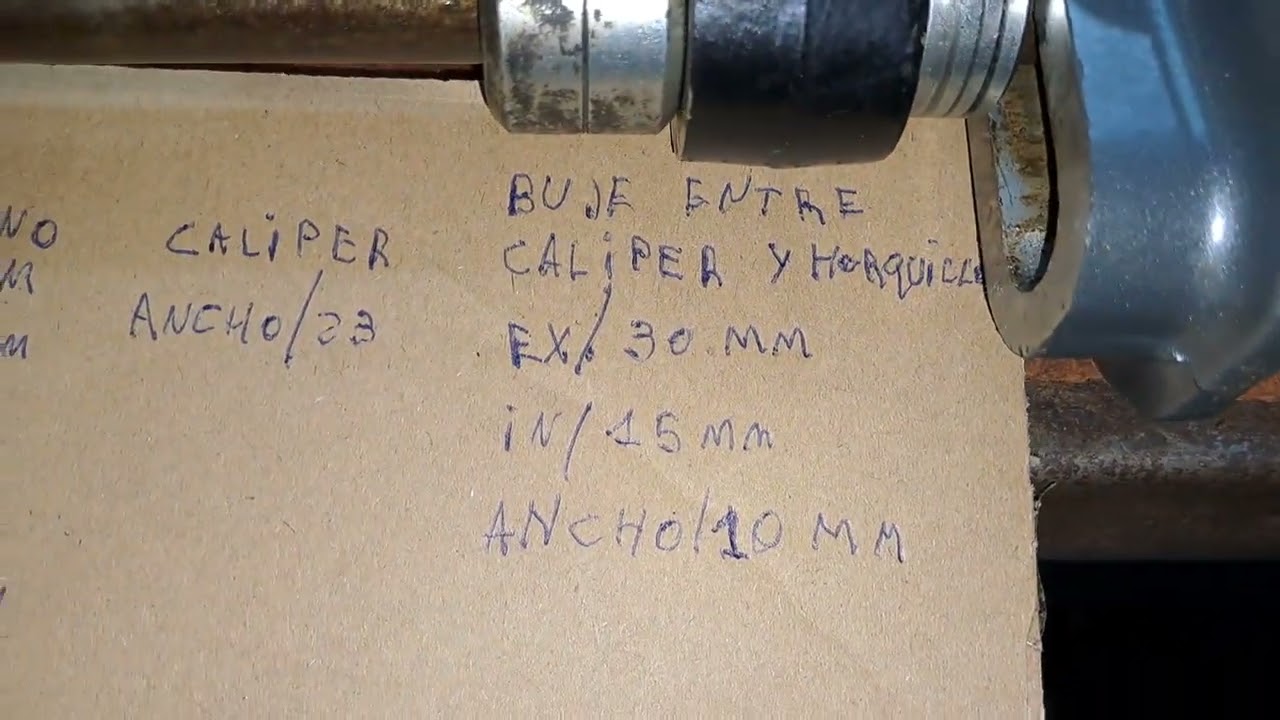 NO
M
M
CALiPER
ANCHO/23
BUJE ENTRE
CALiPER Y HORQUILL
EX/30 MM
iN/15MM
ANCHO/10 MM